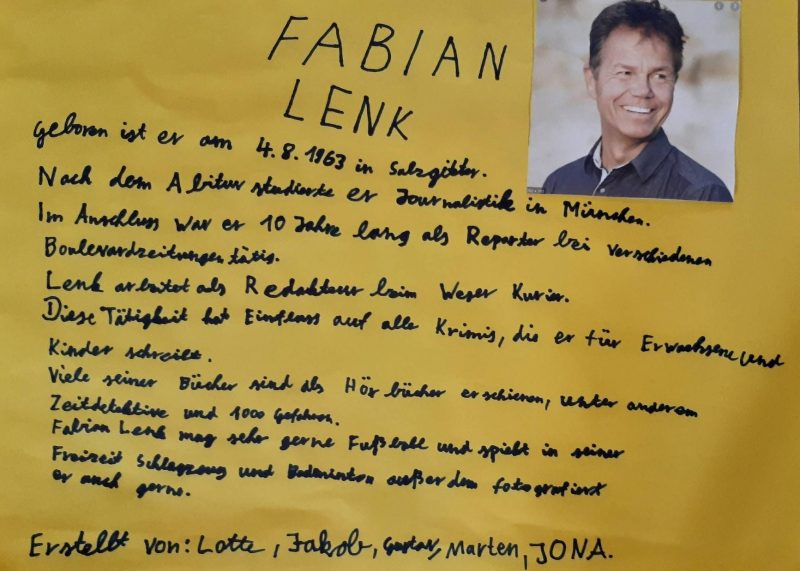 FABIAN
LENK
geboren ist er am 4.8.1963 in Salzgitter.
Nach dem Abitur studierte er Journalistik in München.
Im Anschluss war er 10 Jahre lang als Reporter bei verschiedenen
Boulevardzeitungen tätig.
Lenk arbeitet als Redakteur beim Weser Kurier.
Diese Tätigkeit hat Einfluss auf alle Krimis, die er für Erwachsene und
Kinder schreibt.
Viele seiner Bücher sind als Hör bücher erschienen, unter anderem
Zeitdetektive und 1000 Gefahren.
Fabian Lenk mag sehr gerne Fußball und spielt in seiner
Freizeit Schlagzeug und Badminton außerdem fotografiert
er auch gerne.
Erstellt von: Lotte, Jakob, Gustav, Marten, JONA.